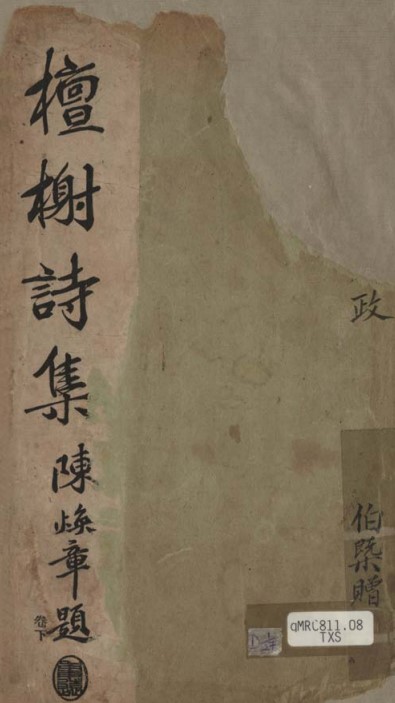 檀榭詩集
陳煥章題
卷下
政
伯槩贈
qMRC811.08
TXS